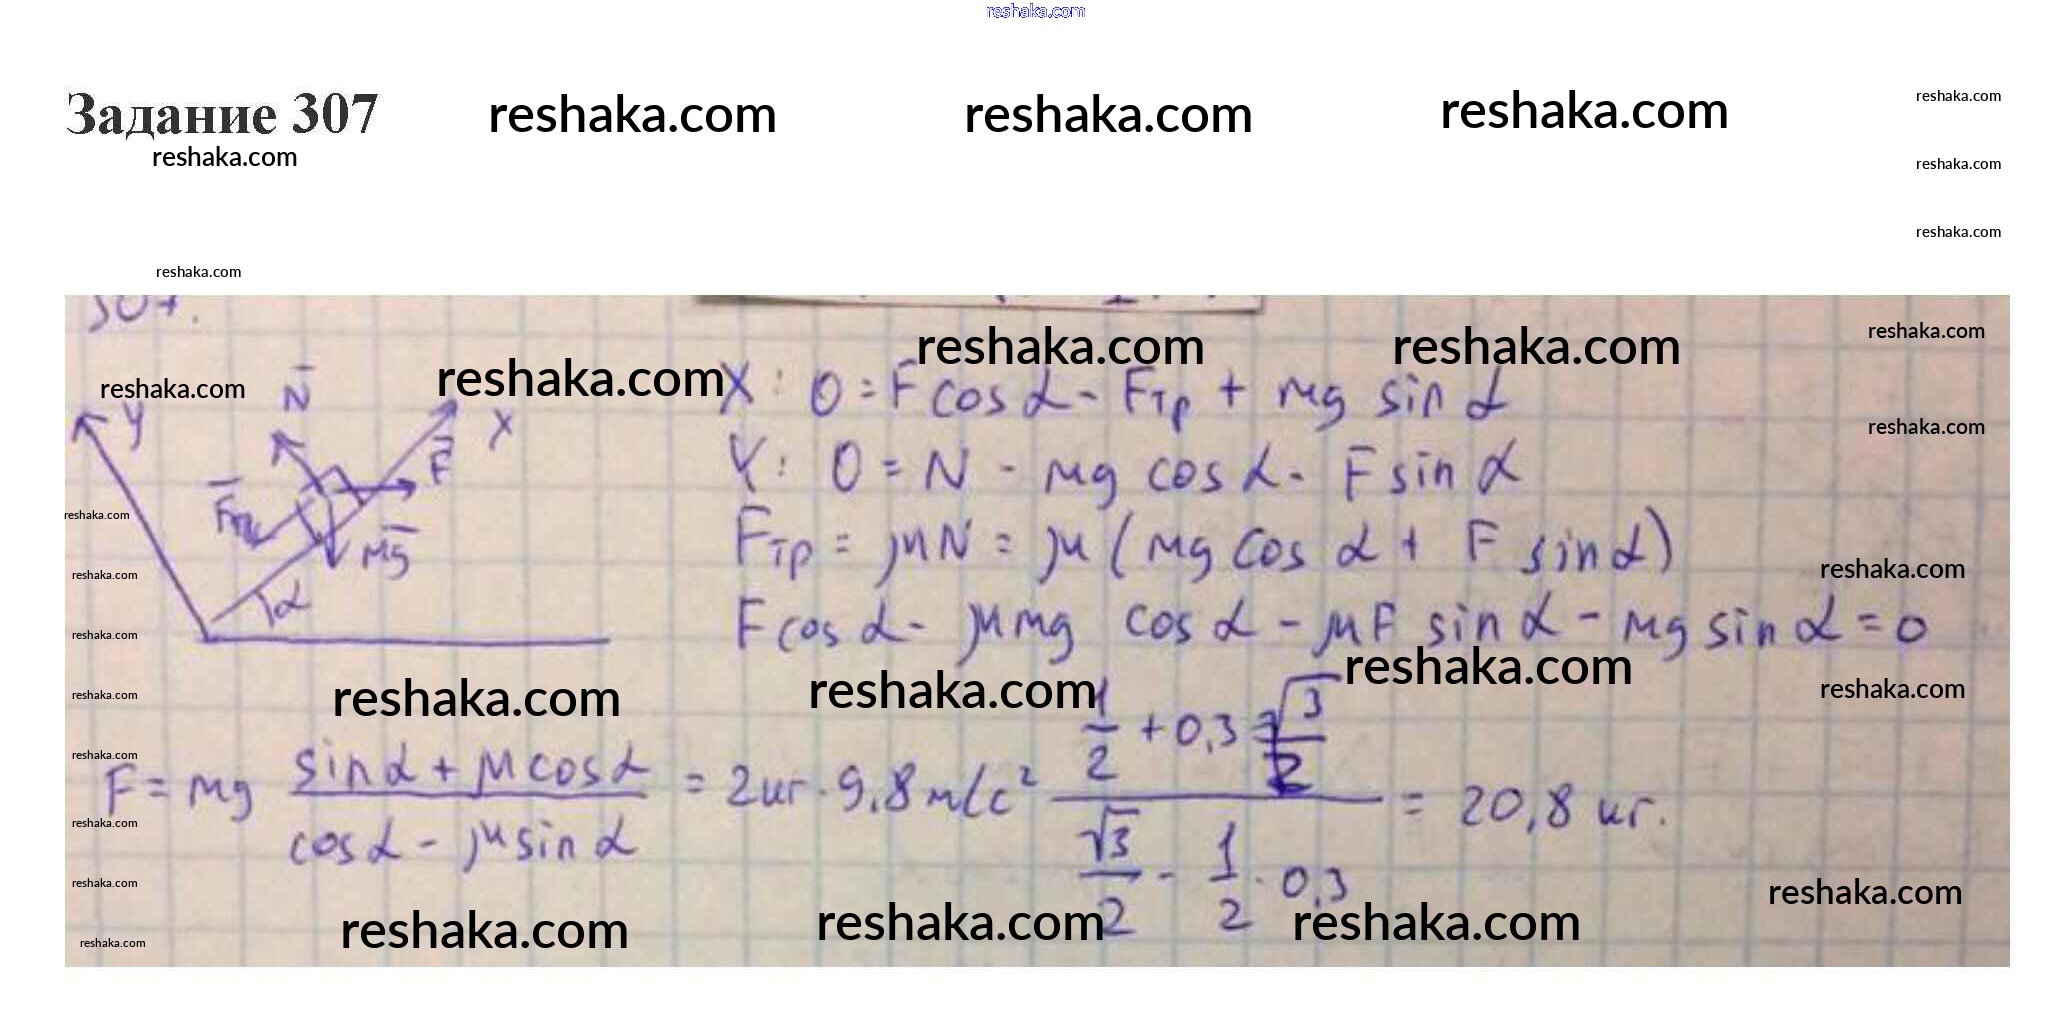 reshaka.com
Задание 307 reshaka.com reshaka.com reshaka.com reshaka.com
reshaka.com reshaka.com
reshaka.com
reshaka.com
307.
reshaka.com reshaka.com reshaka.com
reshaka.com N̄ reshaka.com X: 0 = F cos α - Fтр + mg sin α
y x F̄ reshaka.com
Y: 0 = N - mg cos α - F sin α
F̄тр
reshaka.com m̄g Fтр = μN = μ (mg cos α + F sin α)
reshaka.com reshaka.com
α F cos α - μmg cos α - μF sin α - mg sin α = 0
reshaka.com
reshaka.com reshaka.com reshaka.com reshaka.com
reshaka.com
reshaka.com
F = mg (sin α + μ cos α)/(cos α - μ sin α) = 2 кг · 9,8 м/с² (1/2 + 0,3 √3/2)/(√3/2 - 1/2 · 0,3) = 20,8 кг.
reshaka.com
reshaka.com reshaka.com
reshaka.com reshaka.com reshaka.com
reshaka.com